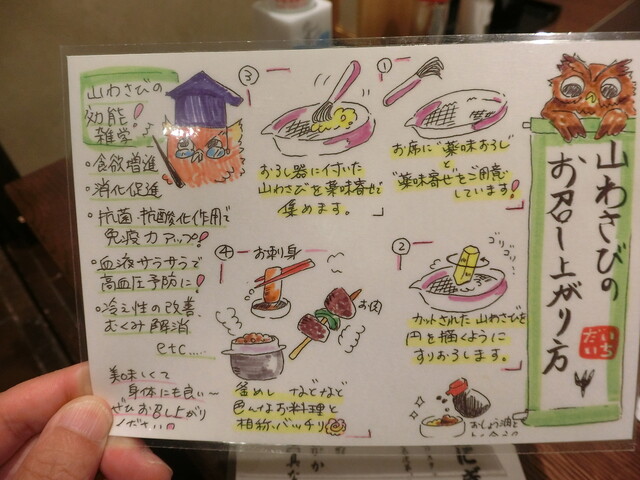 山わさびの
お召し上がり方
だいいち
①
お席に"薬味おろし"
と
"薬味寄せ"をご用意
しています!
②
ゴリゴリ
カットされた山わさびを
円を描くように
すりおろします。
おしょう油と
③
おろし器に付いた
山わさびを薬味寄せで
集めます。
④
お刺身
お肉
釜めし などなど
色んなお料理と
相称バッチリ
山わさびの
効能!
雑学♪
・食欲増進
・消化促進
・抗菌・抗酸化作用で
免疫力アップ!
・血液サラサラで
高血圧予防に!
・冷え性の改善、
むくみ解消
etc....
美味しくて
身体にも良い〜
ぜひお召し上がり
ください!